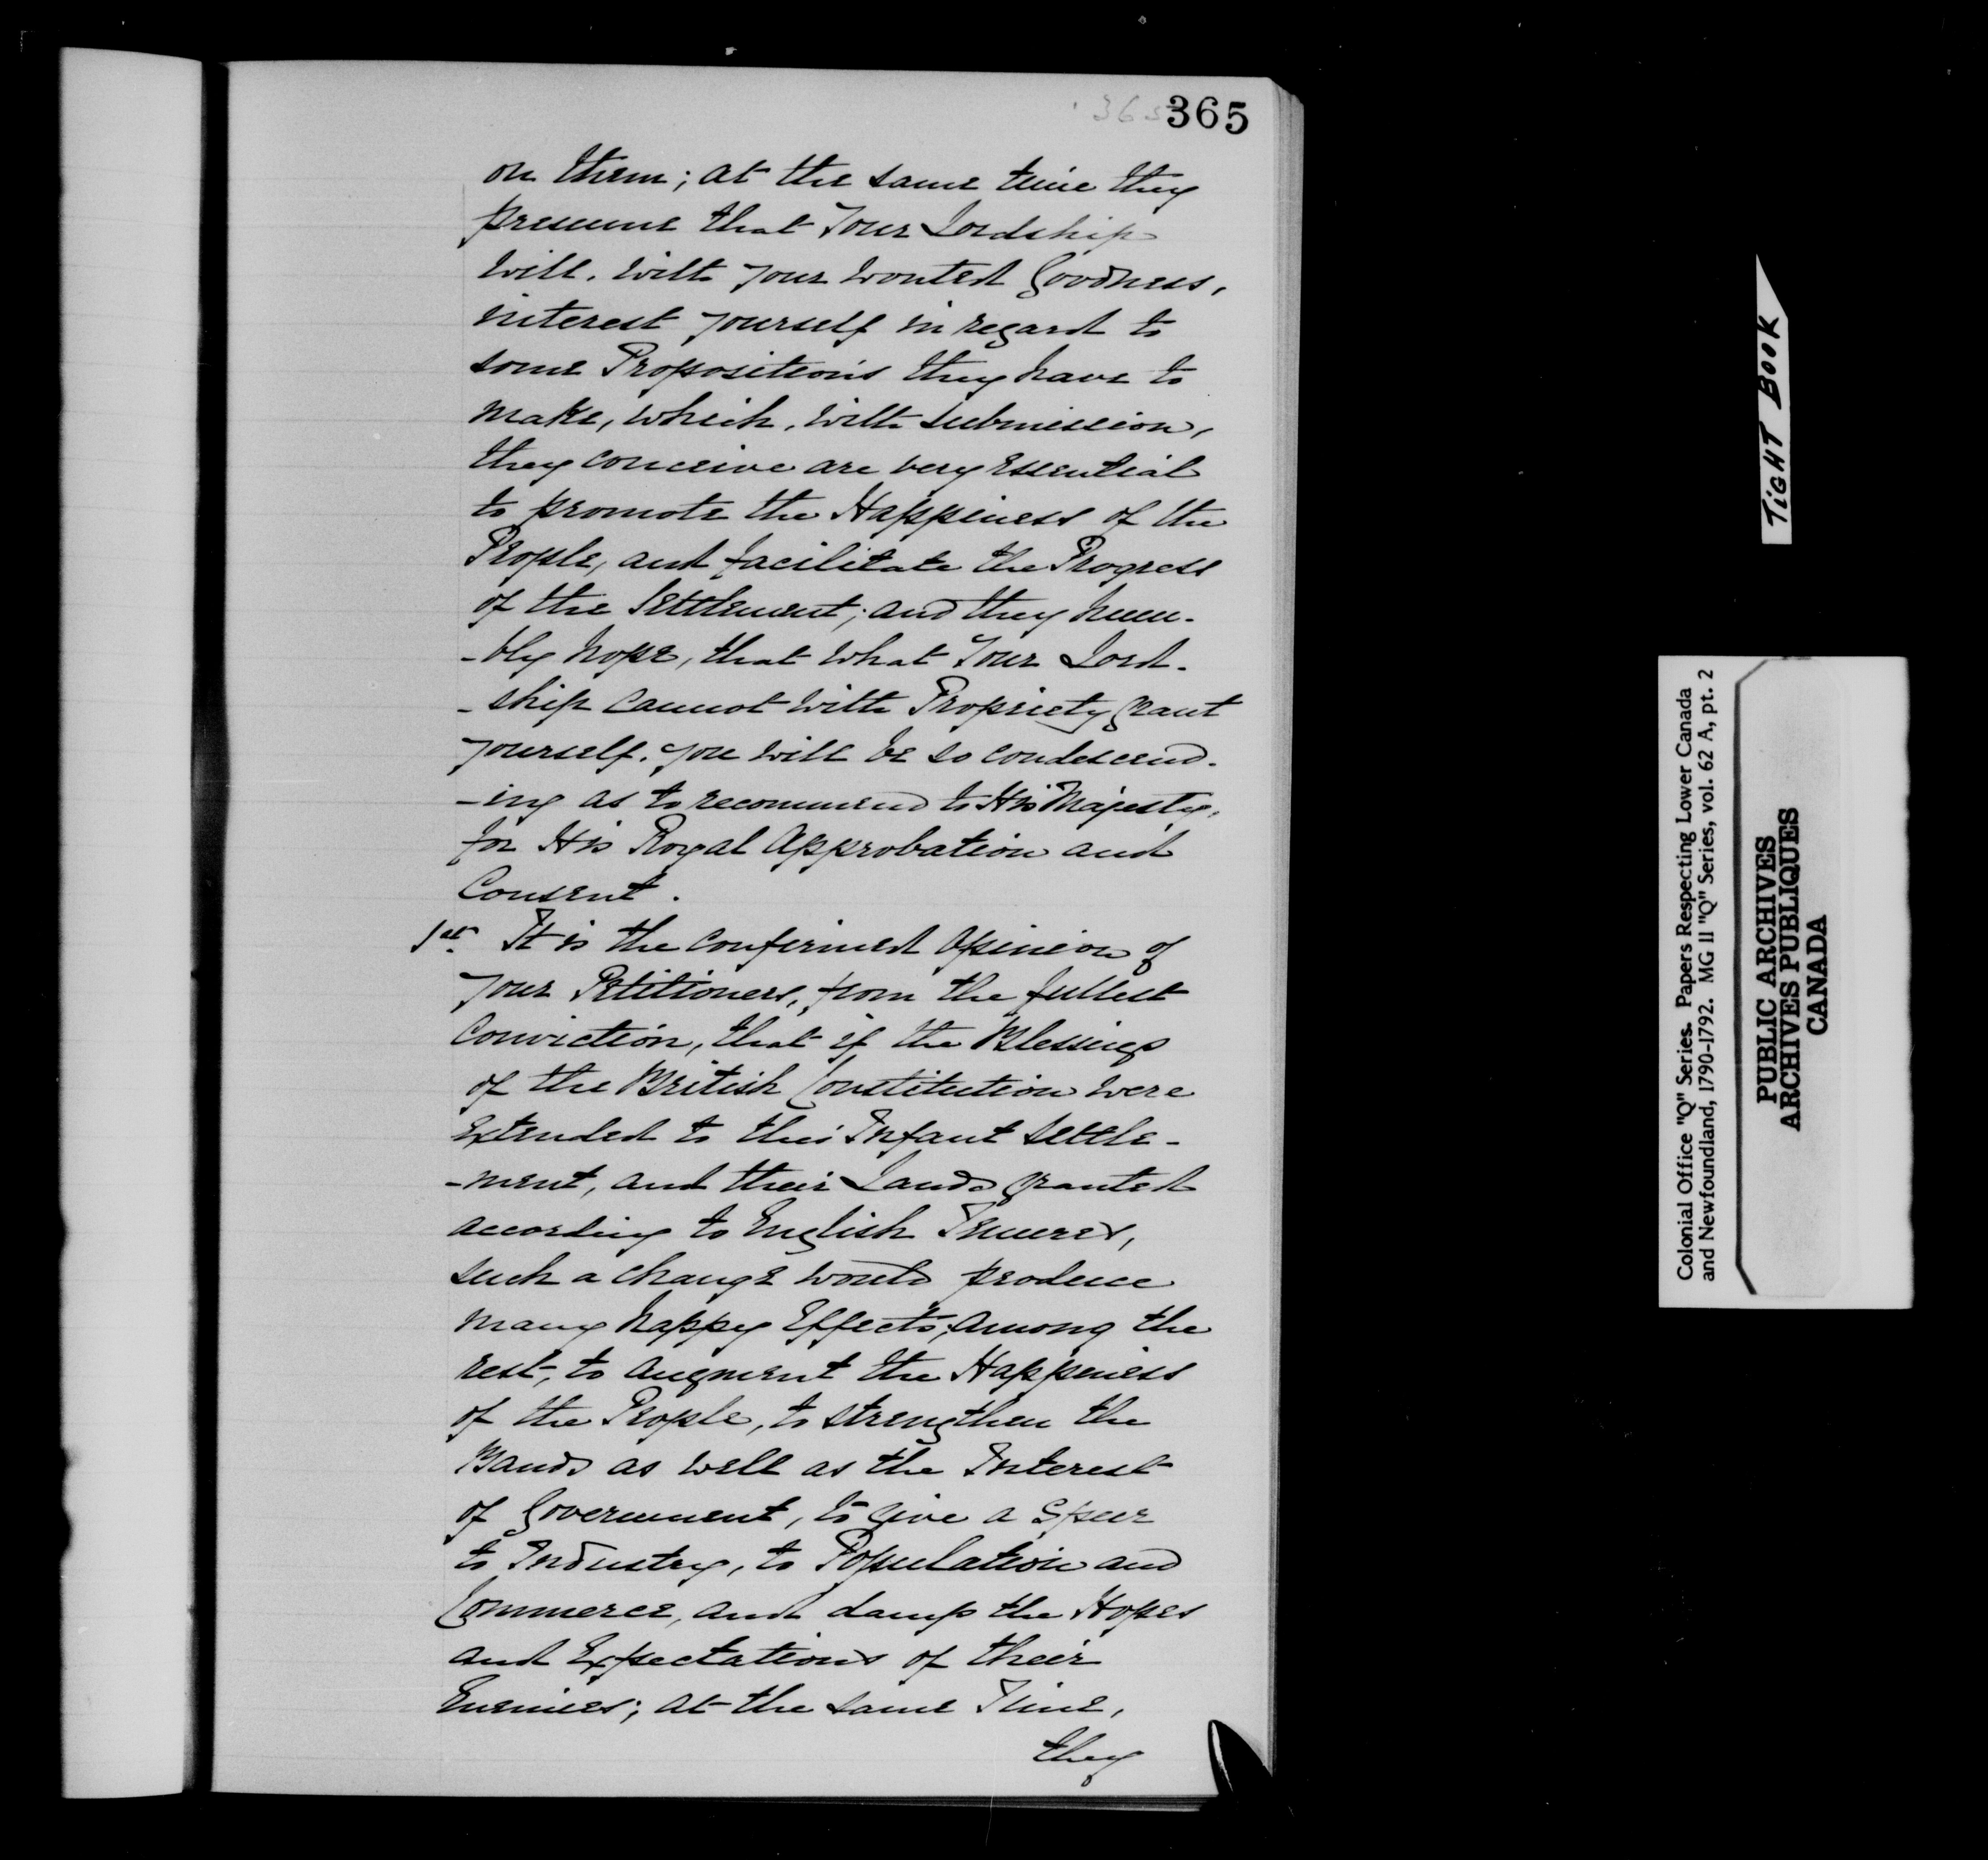 365
365
on them; at the same time they
presume that Your Lordship
will, with your wonted Goodness,
interest yourself in regard to
some Propositions they have to
make, which, with submission,
they conceive are very Essential
to promote the Happiness of the
People, and facilitate the Progress
of the Settlement; and they hum-
-bly hope, that what Your Lord-
-ship cannot with Propriety grant
yourself, you will be so condescend-
-ing as to recommend to His Majesty,
for His Royal Approbation and
Consent.
1st. It is the confirmed Opinion of
your Petitioners, from the fullest
Conviction, that if the Blessings
of the British Constitution were
Extended to this Infant Settle-
-ment, and their Lands granted
according to English Tenures,
such a change would produce
many happy Effects; among the
rest, to augment the Happiness
of the People, to strengthen the
Bands as well as the Interest
of Government, to give a Spur
to Industry, to Population and
Commerce, and damp the Hopes
and Expectations of their
Enemies; at the same Time,
they
TIGHT BOOK
Colonial Office "Q" Series. Papers Respecting Lower Canada
and Newfoundland, 1790-1792. MG 11 "Q" Series, vol. 62 A, pt. 2
PUBLIC ARCHIVES
ARCHIVES PUBLIQUES
CANADA